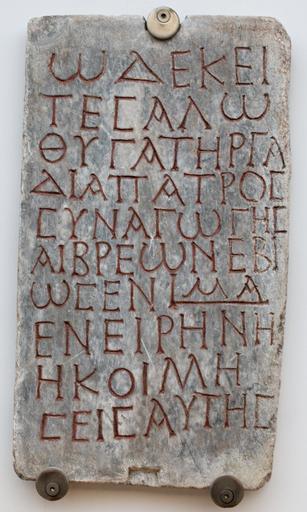 ΩΔΕΚΕΙ
ΤΕϹΑΛΩ
ΘΥΓΑΤΗΡΓΑ
ΔΙΑΠΑΤΡΟϹ
ϹΥΝΑΓΩΓΗϹ
ΑΙΒΡΕΩΝΕΒΙ
ΩϹΕΝ ΜΑ
ΕΝΕΙΡΗΝΗ
ΗΚΟΙΜΗ
ϹΕΙϹΑΥΤΗϹ